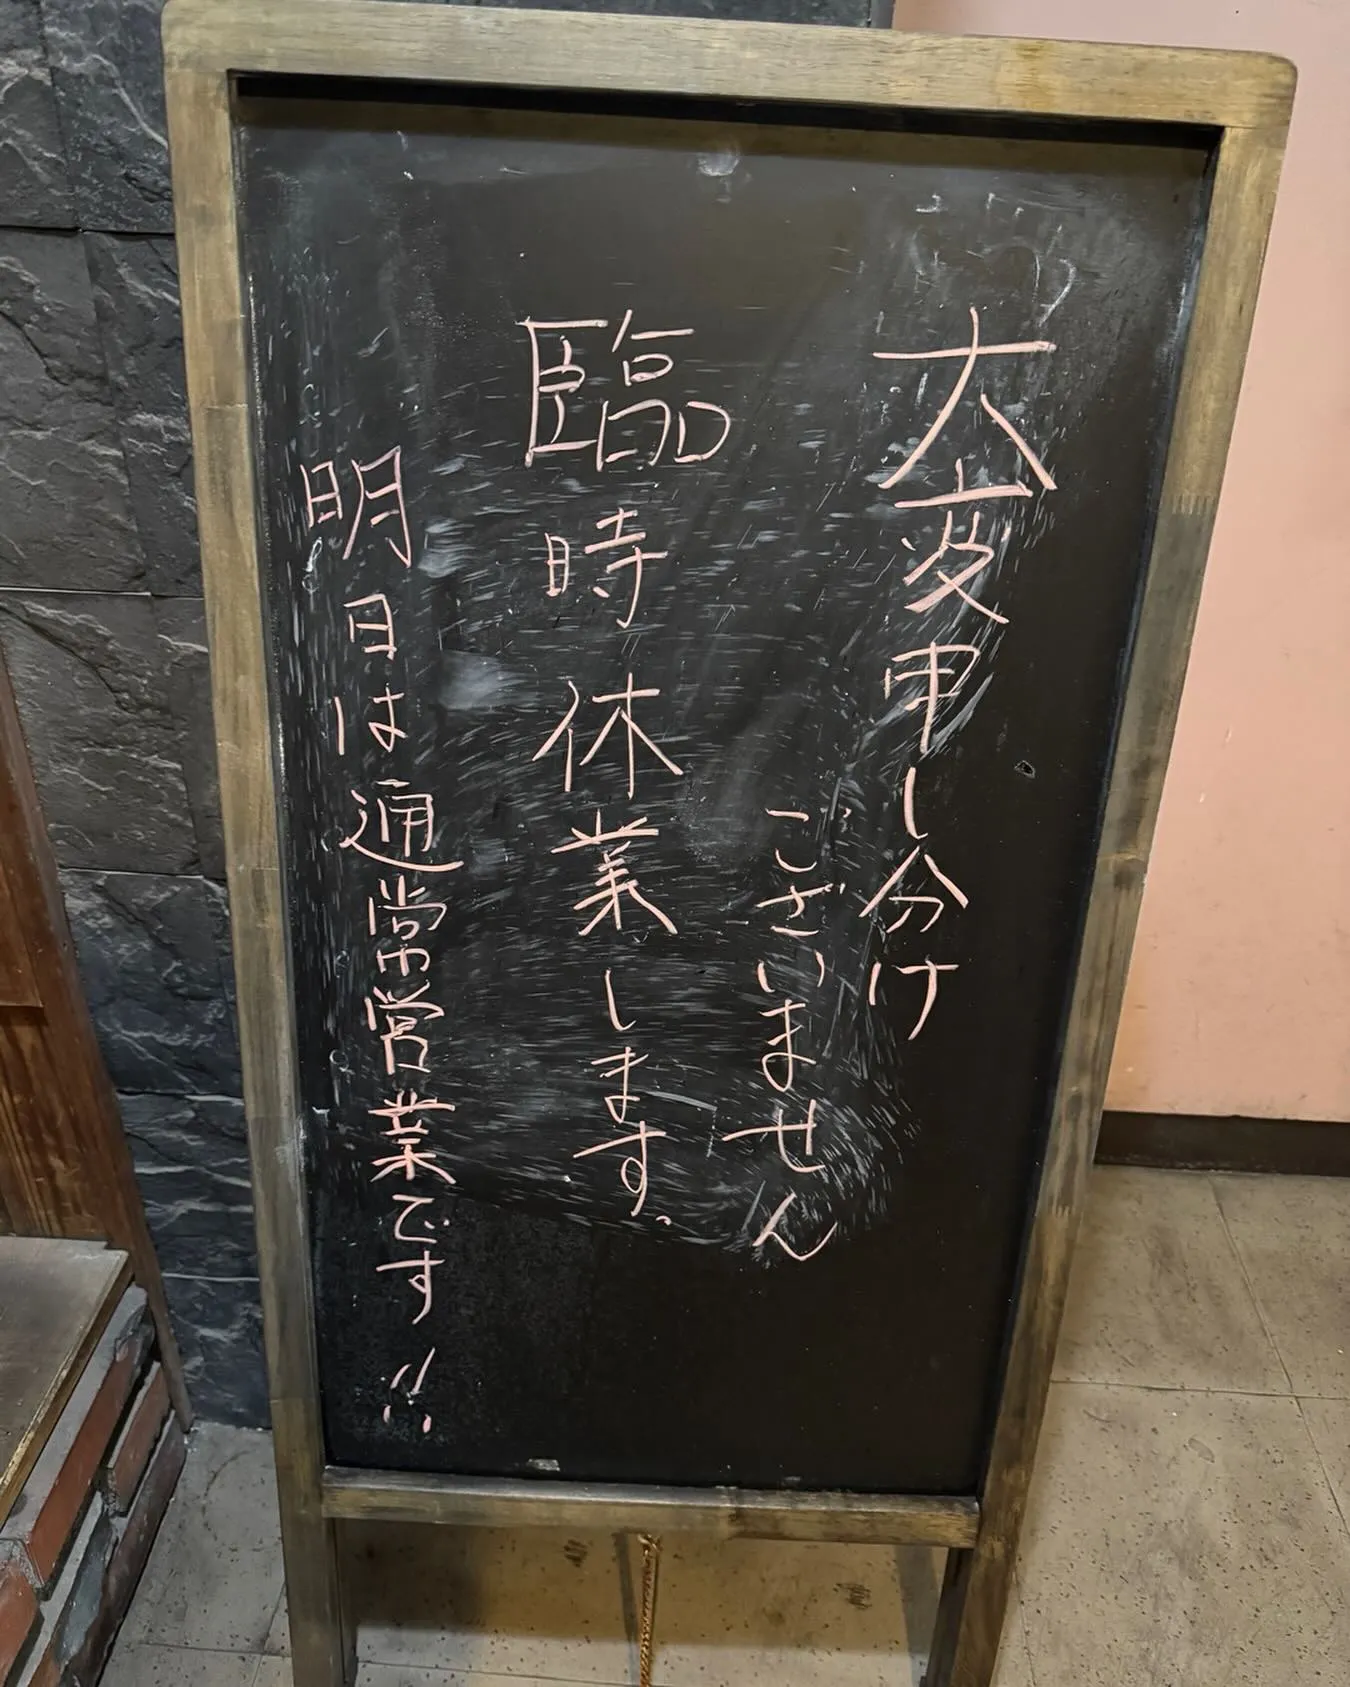 大変申し分け
ございません
臨時休業します。
明日は通常営業です!!